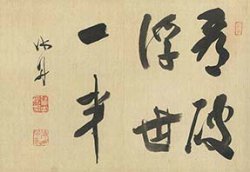 看破
浮世
一半